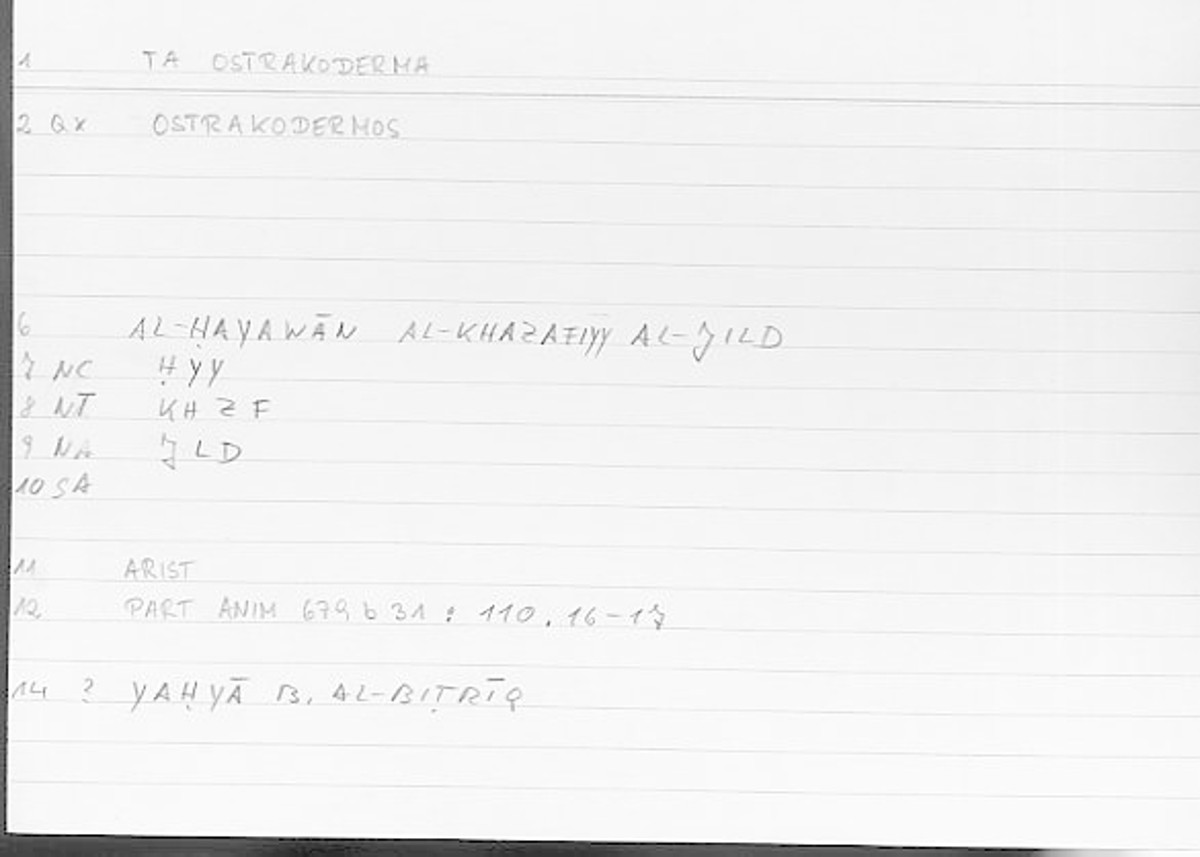 1 TA OSTRAKODERMA
2 QX OSTRAKODERMOS
6 AL-ḤAYAWĀN AL-KHAZAFIYY AL-JILD
7 NC ḤYY
8 NT KHZF
9 NA JLD
10 SA
11 ARIST
12 PART ANIM 679 b 31 : 110.16-17
14 ? YAḤYĀ B. AL-BIṬRĪQ